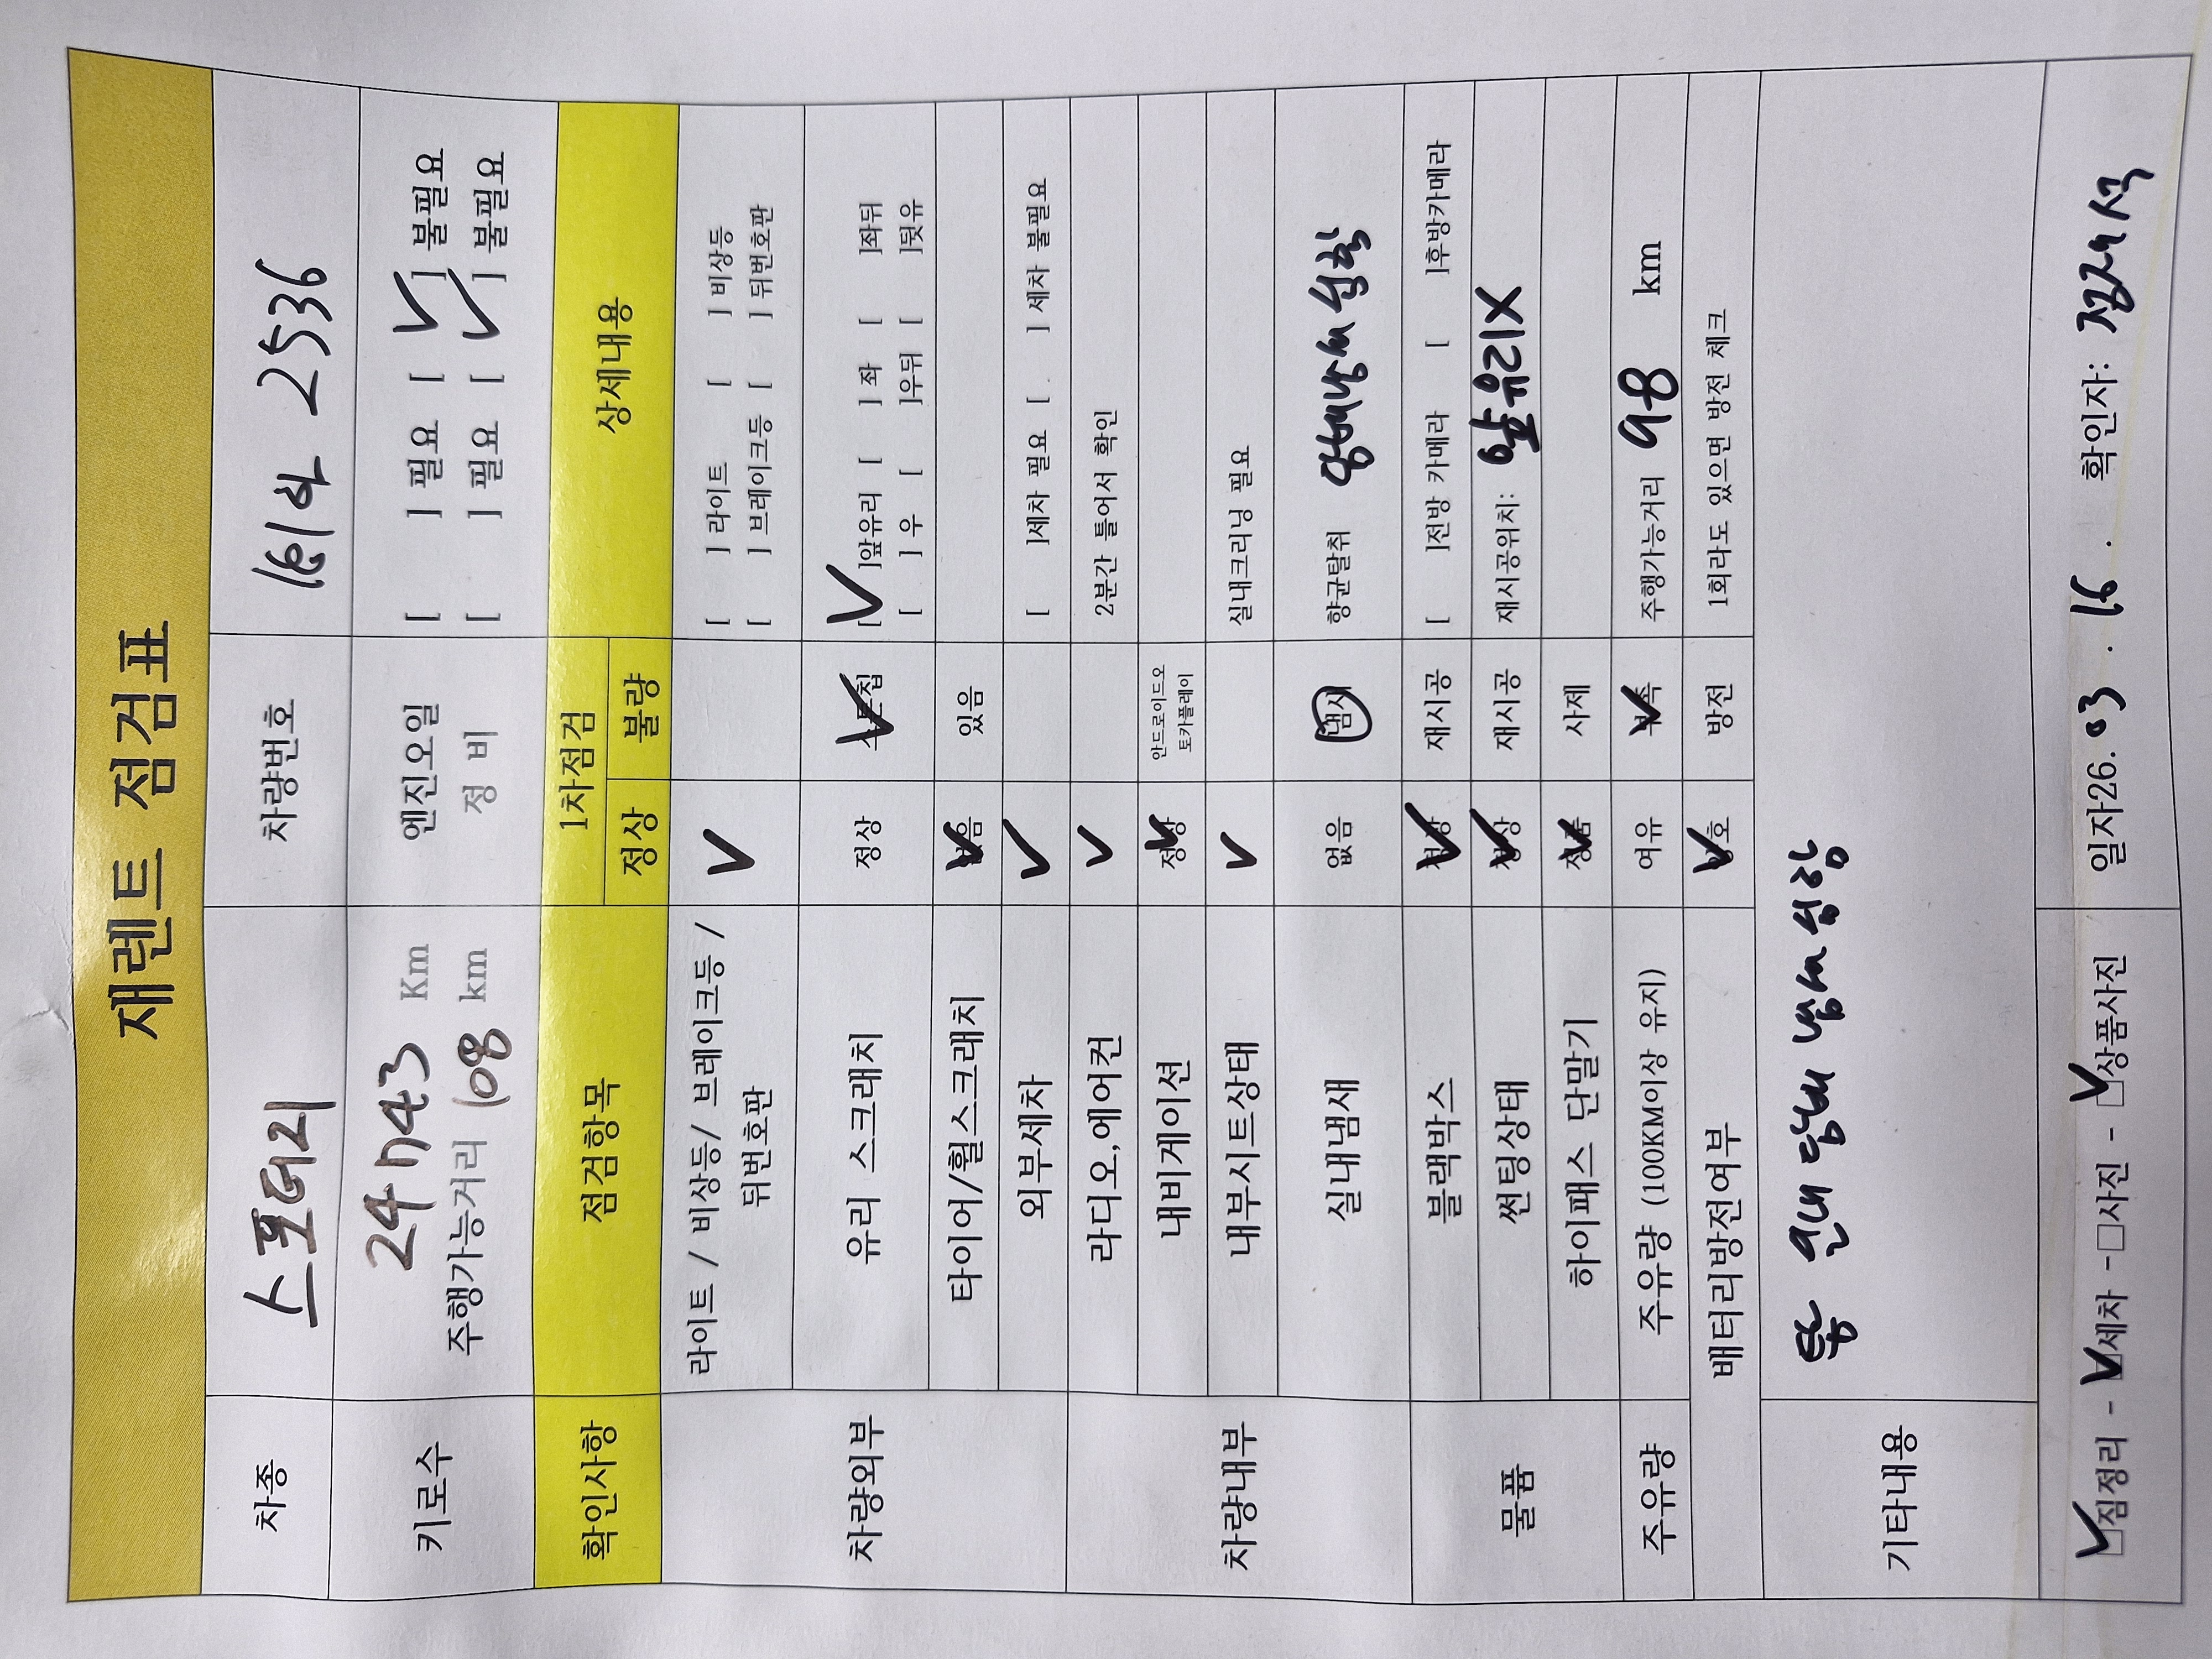 재렌트 점검표
차종 스포티지 차량번호 161 2536
키로수 24743 Km 엔진오일 [ ] 필요 [ ✓ ] 불필요
주행가능거리 108 km 정 비 [ ] 필요 [ ✓ ] 불필요
확인사항 점검항목 1차점검 상세내용
정상 불량
차량외부
라이트 / 비상등/ 브레이크등 / 뒤번호판 ✓ [ ] 라이트 [ ] 비상등
[ ] 브레이크등 [ ] 뒤번호판
유리 스크래치 정상 ✓ [✓ ]앞유리 [ ] 좌 [ ]좌뒤
[ ] 우 [ ]우뒤 [ ]뒷유
타이어/휠스크래치 없음 ✓ 있음
외부세차 ✓ [ ]세차 필요 [ . ] 세차 불필요
차량내부
라디오,에어컨 ✓ 2분간 틀어서 확인
내비게이션 정상 ✓ 안드로이드오
토카플레이
내부시트상태 ✓ 실내크리닝 필요
실내냄새 없음 냄새 향균탈취 담배냄새 심각
물품
블랙박스 정상 ✓ 재시공 [ ]전방 카메라 [ ]후방카메라
썬팅상태 정상 ✓ 재시공 재시공위치: 앞유리X
하이패스 단말기 정품 ✓ 사제
주유량 주유량 (100KM이상 유지) 여유 부족 ✓ 주행가능거리 98 km
배터리방전여부 양호 ✓ 방전 1회라도 있으면 방전 체크
기타내용 담배 냄새 심함
✓짐정리 - ✓세차 -□사진 - ✓상품사진 일자26. 03 . 16 . 확인자: